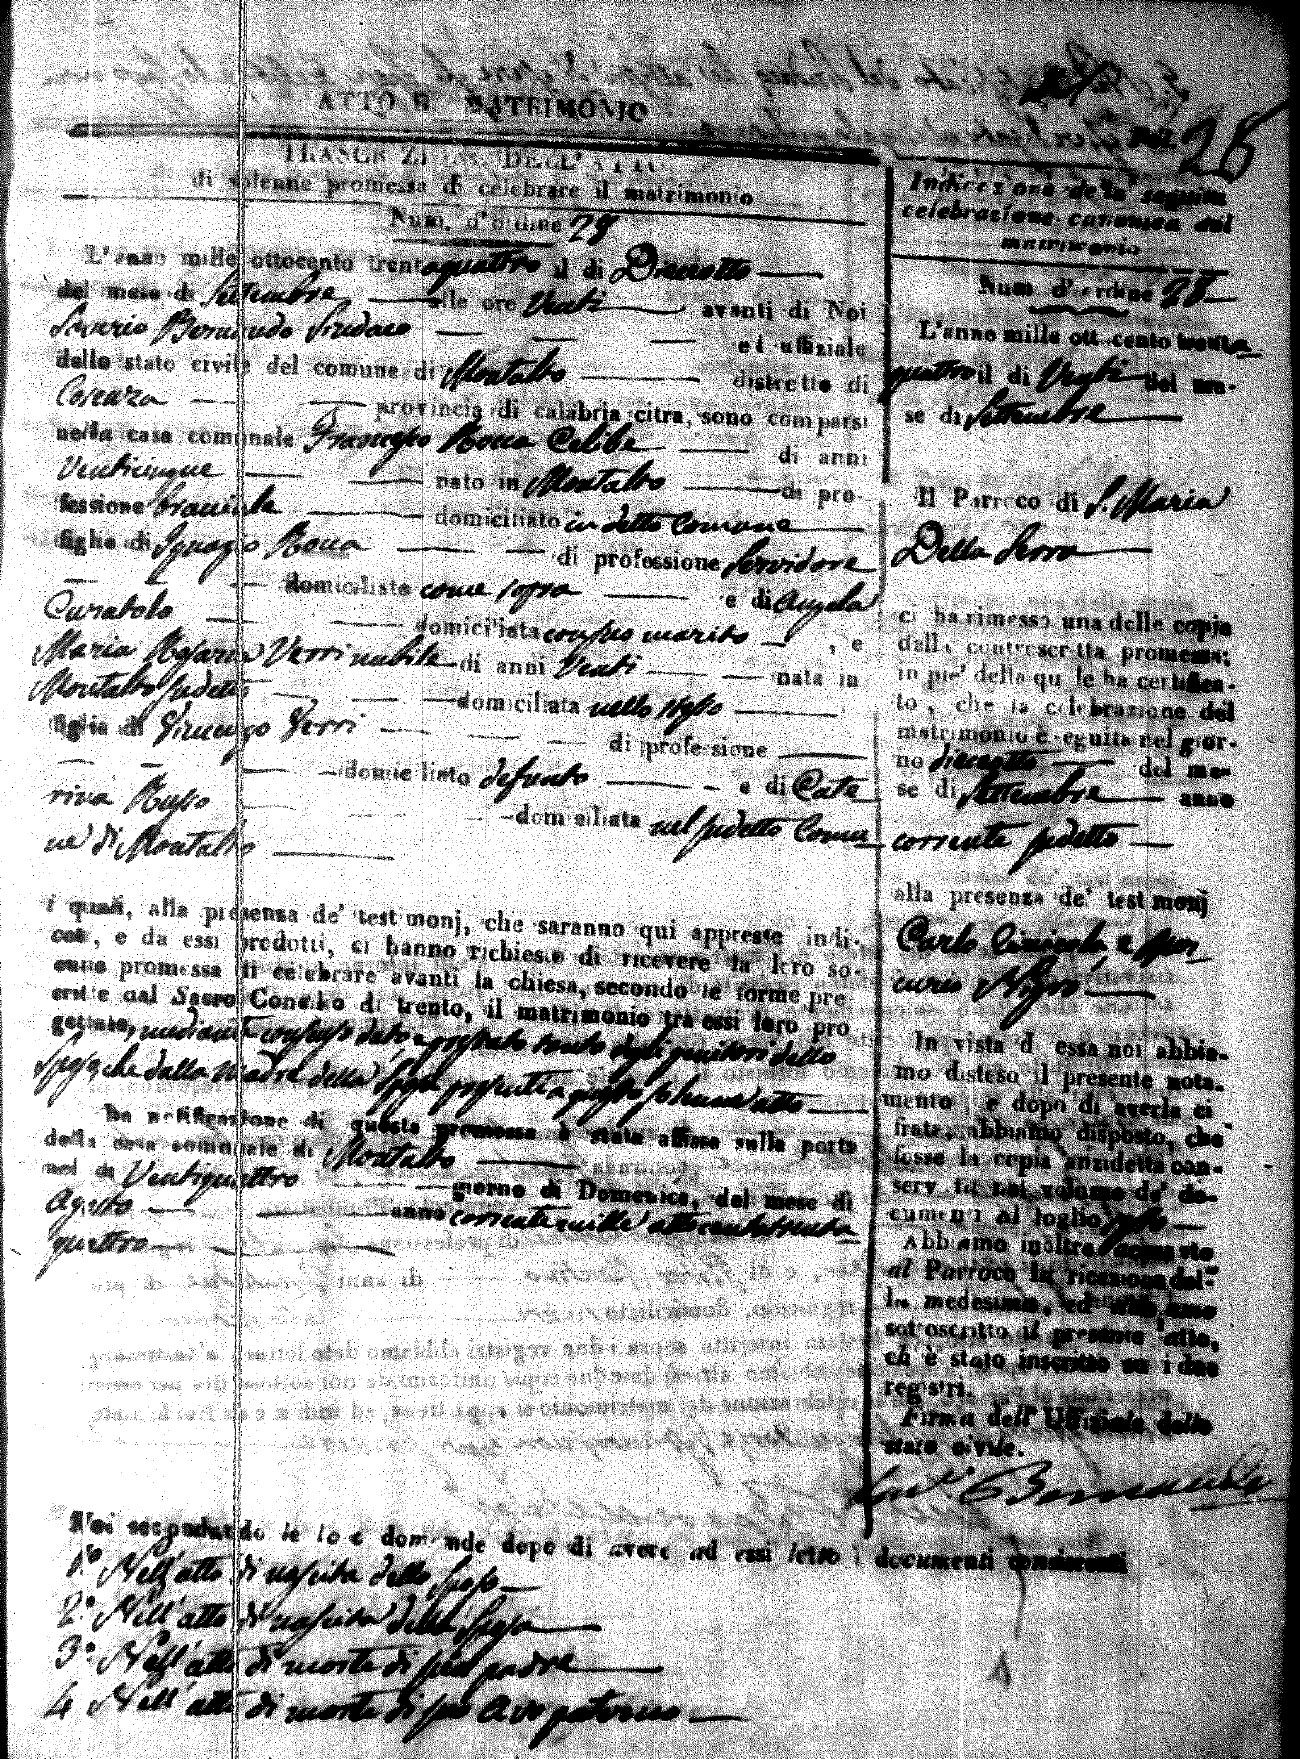 26
ATTO DI MATRIMONIO
TRASCRIZIONE DELL'ATTO
di solenne promessa di celebrare il matrimonio
Num. d'ordine 28
L'anno mille ottocento trentaquattro il di Dieciotto
del mese di Settembre alle ore Venti avanti di Noi
Saverio Bernaudo Sindaco ed uffiziale
dello stato civile del comune di Montalto distretto di
Cosenza provincia di calabria citra, sono comparsi
nella casa comunale Francesco Rocca Celibe di anni
Venticinque nato in Montalto di pro-
fessione Bracciale domiciliato in detto Comune
figlio di Ignazio Rocca di professione Servidore
domiciliato come sopra e di Angela
Curatolo domiciliata con suo marito , e
Maria Rosaria Verri nubile di anni Venti nata in
Montalto sudetto domiciliata nello stesso
figlia di Vincenzo Verri di professione
domiciliato defunto e di Cate
rina Russo domiciliata nel sudetto Comu
ne di Montalto
i quali, alla presenza de' testimonj, che saranno qui appresso indi-
cati, e da essi prodotti, ci hanno richiesto di ricevere la loro so-
enne promessa di celebrare avanti la chiesa, secondo le forme pre
critte dal Sacro Concilio di trento, il matrimonio tra essi loro pro
gettato, mediante consenso dato e prestato tanto dagli genitori dello
Sposo, che dalla Madre della Sposa presenti a questo solenne atto
La notificazione di questa promessa è stata affissa sulla porta
della casa comunale di Montalto
nel di Ventiquattro giorno di Domenica, del mese di
Agosto anno corrente mille ottocentotrenta
quattro
Noi secondando le loro domande dopo di avere ad essi letto i documenti consistenti
1.° Nell'atto di nascita dello sposo
2.° Nell'atto di nascita della sposa
3.° Nell'atto di morte di suo padre
4 Nell'atto di morte di suo avo paterno
Indicazione della seguita
celebrazione canonica del
matrimonio
Num. d'ordine 28
L'anno mille ottocento trenta
quattro il di Venti del me-
se di Settembre
Il Parroco di S. Maria
Della Serra
ci ha rimesso una delle copie
della controscritta promessa;
in piè della quale ha certifica-
to, che la celebrazione del
matrimonio è seguita nel gior-
no dieciotto del me-
se di Settembre anno
corrente sudetto
alla presenza de' testimonj
Carlo e
Nigro
In vista di essa noi abbia-
mo disteso il presente nota-
mento e dopo di averla ci
frata, abbiamo disposto, che
fosse la copia anzidetta con-
servata nel volume de' do-
cumenti al foglio
Abbiamo inoltre accusato
al Parroco la ricezione del-
la medesima, ed abbiamo
sottoscritto il presente atto,
ch'è stato inscritto su i due
registri.
Firma dell'Uffiziale dello
stato civile.
Sav. Bernaudo